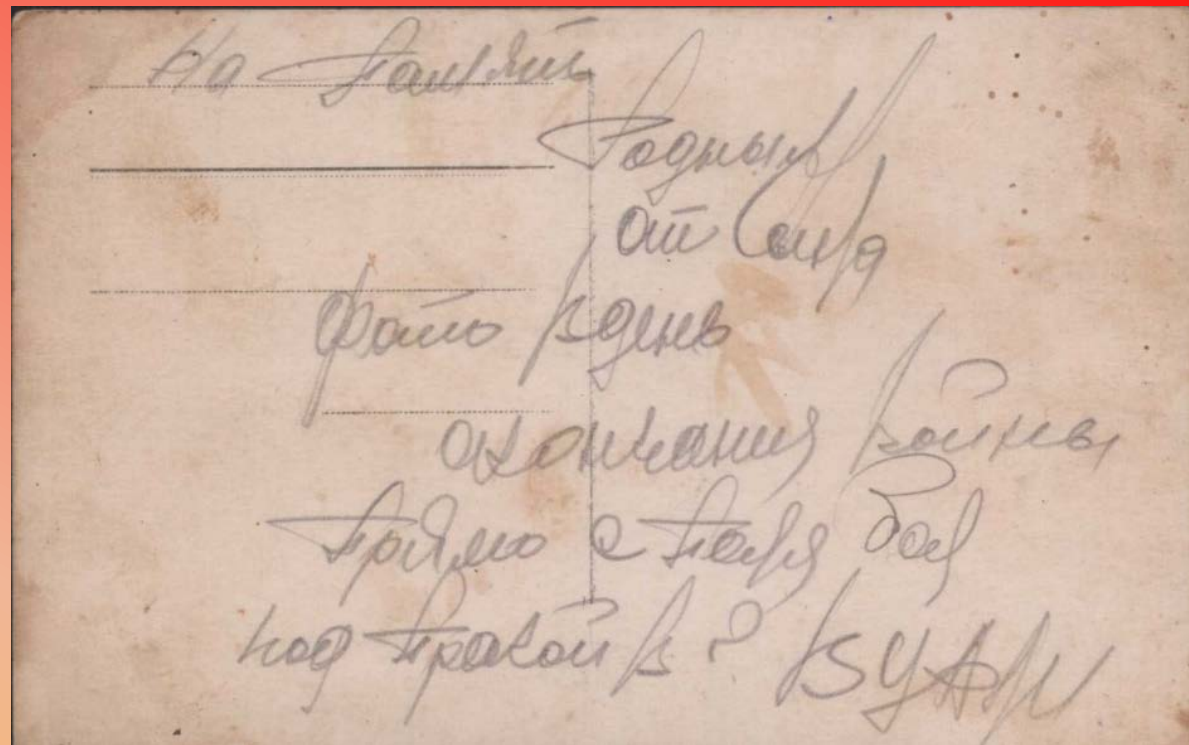 На Память
Родным
от Сына
фото в день
окончания войны
прямо с поля боя
под Прагой в г